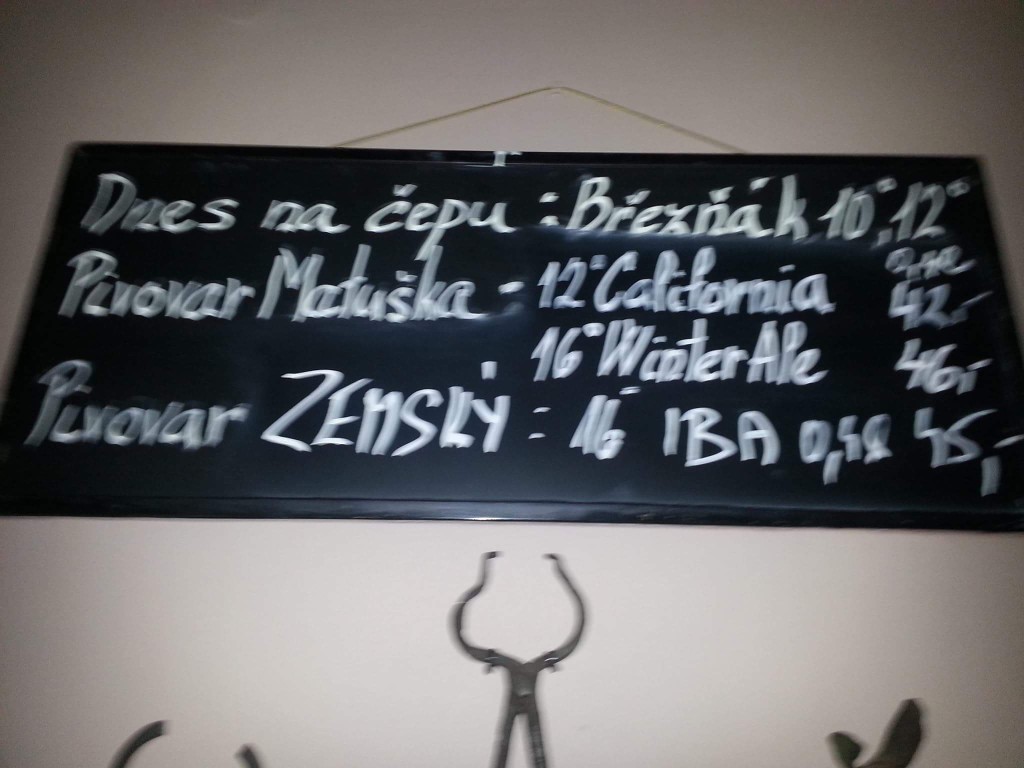 Dnes na čepu : Březňák 10°, 12°
Pivovar Matuška - 12° California 42,-
16° Winter Ale 46,-
Pivovar ZEMSKÝ : 16 IBA 0,4l 45,-